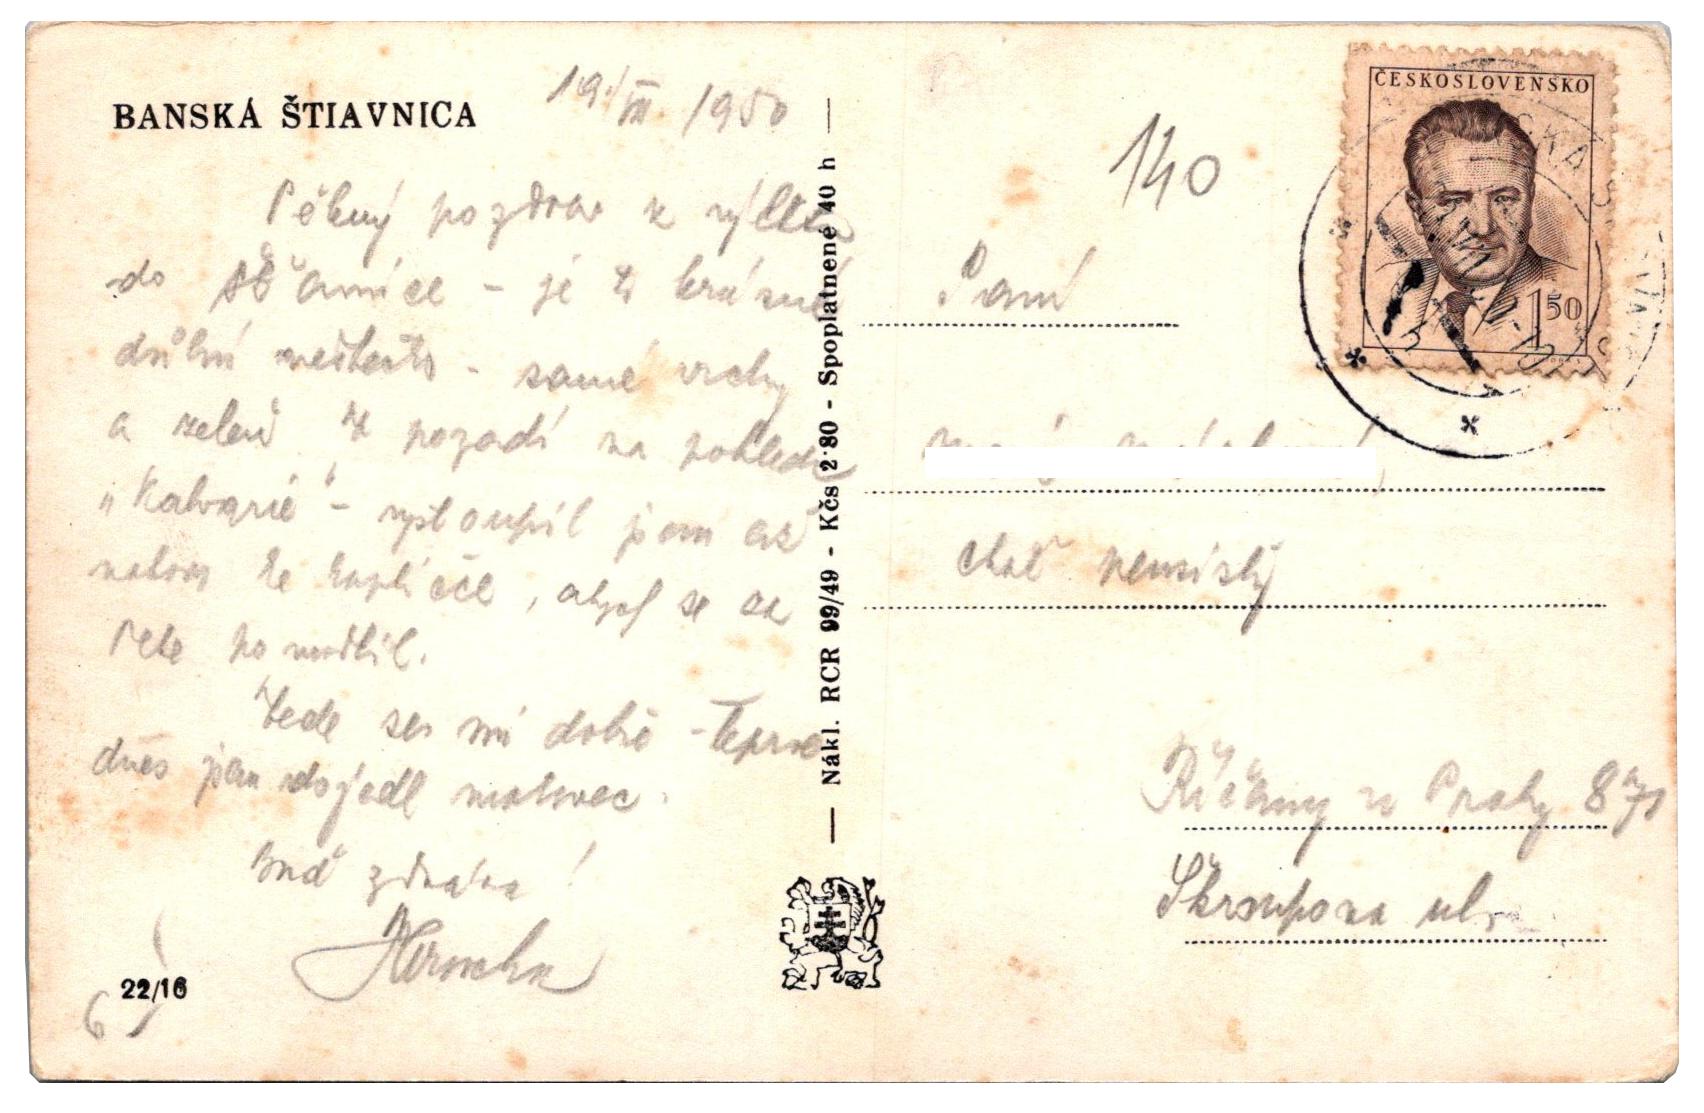 BANSKÁ ŠTIAVNICA
19./VII. 1950
Pěkný pozdrav z výletu
do Šťavnice - je to krásné
důlní městečko - samé vrchy
a zeleň. V pozadí na pohledu
"Kalvarie" - vystoupil jsem až
nahoru ke kapličce, abych se za
Tebe pomodlil.
Vede se mi dobře - Teprve
dnes jsem dojedl moravec.
Buď zdráva!
22/16
6)
— Nákl. RCR 99/49 - Kčs 2·80 - Spoplatnené 40 h —
140
ČESKOSLOVENSKO
1 50
Paní
Říčany u Prahy 871
Škroupova ul.